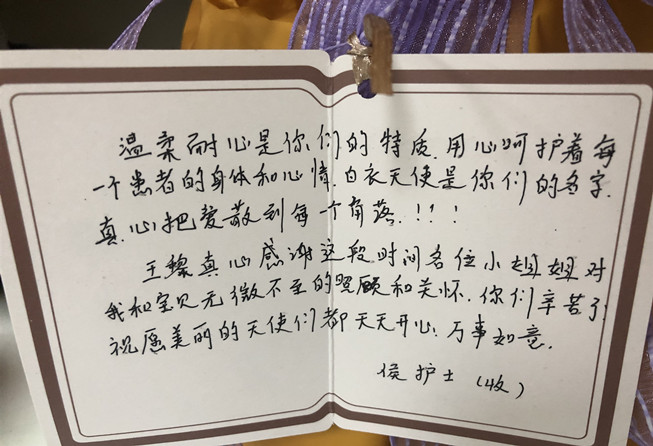 温柔耐心是你们的特质.用心呵护着每
一个患者的身体和心情.白衣天使是你们的名字.
真心把爱散到每一个角落.!!!
王璨真心感谢这段时间各位小姐姐对
我和宝贝无微不至的照顾和关怀.你们辛苦了
祝愿美丽的天使们都天天开心.万事如意.
侯护士(收)